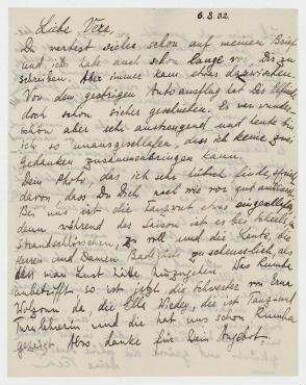 6.3.32.
Liebe Vera,
Du wartest sicher schon auf meinen Brief
und ich habe auch schon lange vor, Dir zu
schreiben. Aber immer kam etwas dazwischen.
Von dem gestrigen Autoausflug hat Dir
doch schon sicher geschrieben. Es war wunder-
schön aber sehr anstrengend und heute bin
ich so unausgeschlafen, dass ich keine zwei
Gedanken zusammenbringen kann.
Dein Photo, das ich sehr hübsch finde,
davon, dass Du Dich nach wie vor gut
Bei uns ist die Tanzwut etwas eingeschlafen
denn während der Saison ist es bei
Strandschlösschen, zu voll und die Leute, die
Herren und Damen Badegäste zu scheusslich, als
dass man Lust hätte hinzugehen. Das Rumba
anbetrifft so ist jetzt die Schwester von Erna
da die Ella Wiedey, die ist Tanz- und
Turnlehrerin und die hat uns schon Rumba
gezeigt. Also, danke für Dein Angebot.